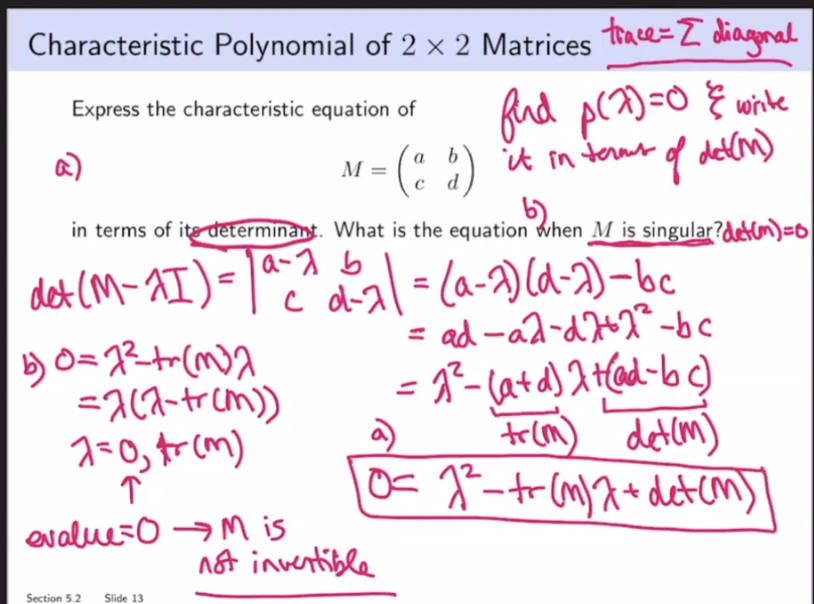 Characteristic Polynomial of 2 × 2 Matrices trace = Σ diagonal
Express the characteristic equation of
find p(λ)=0 & write
it in terms of det(M)
a)
M = ( a b
c d )
b)
in terms of its determinant. What is the equation when M is singular? det(M)=0
det(M-λI) = |a-λ b
c d-λ| = (a-λ)(d-λ)-bc
= ad-aλ-dλ+λ²-bc
= λ²-(a+d)λ+(ad-bc)
tr(M) det(M)
a)
0= λ²-tr(M)λ+det(M)
b) 0=λ²-tr(M)λ
=λ(λ-tr(M))
λ=0, tr(M)
↑
evalue=0 → M is
not invertible
Section 5.2 Slide 13